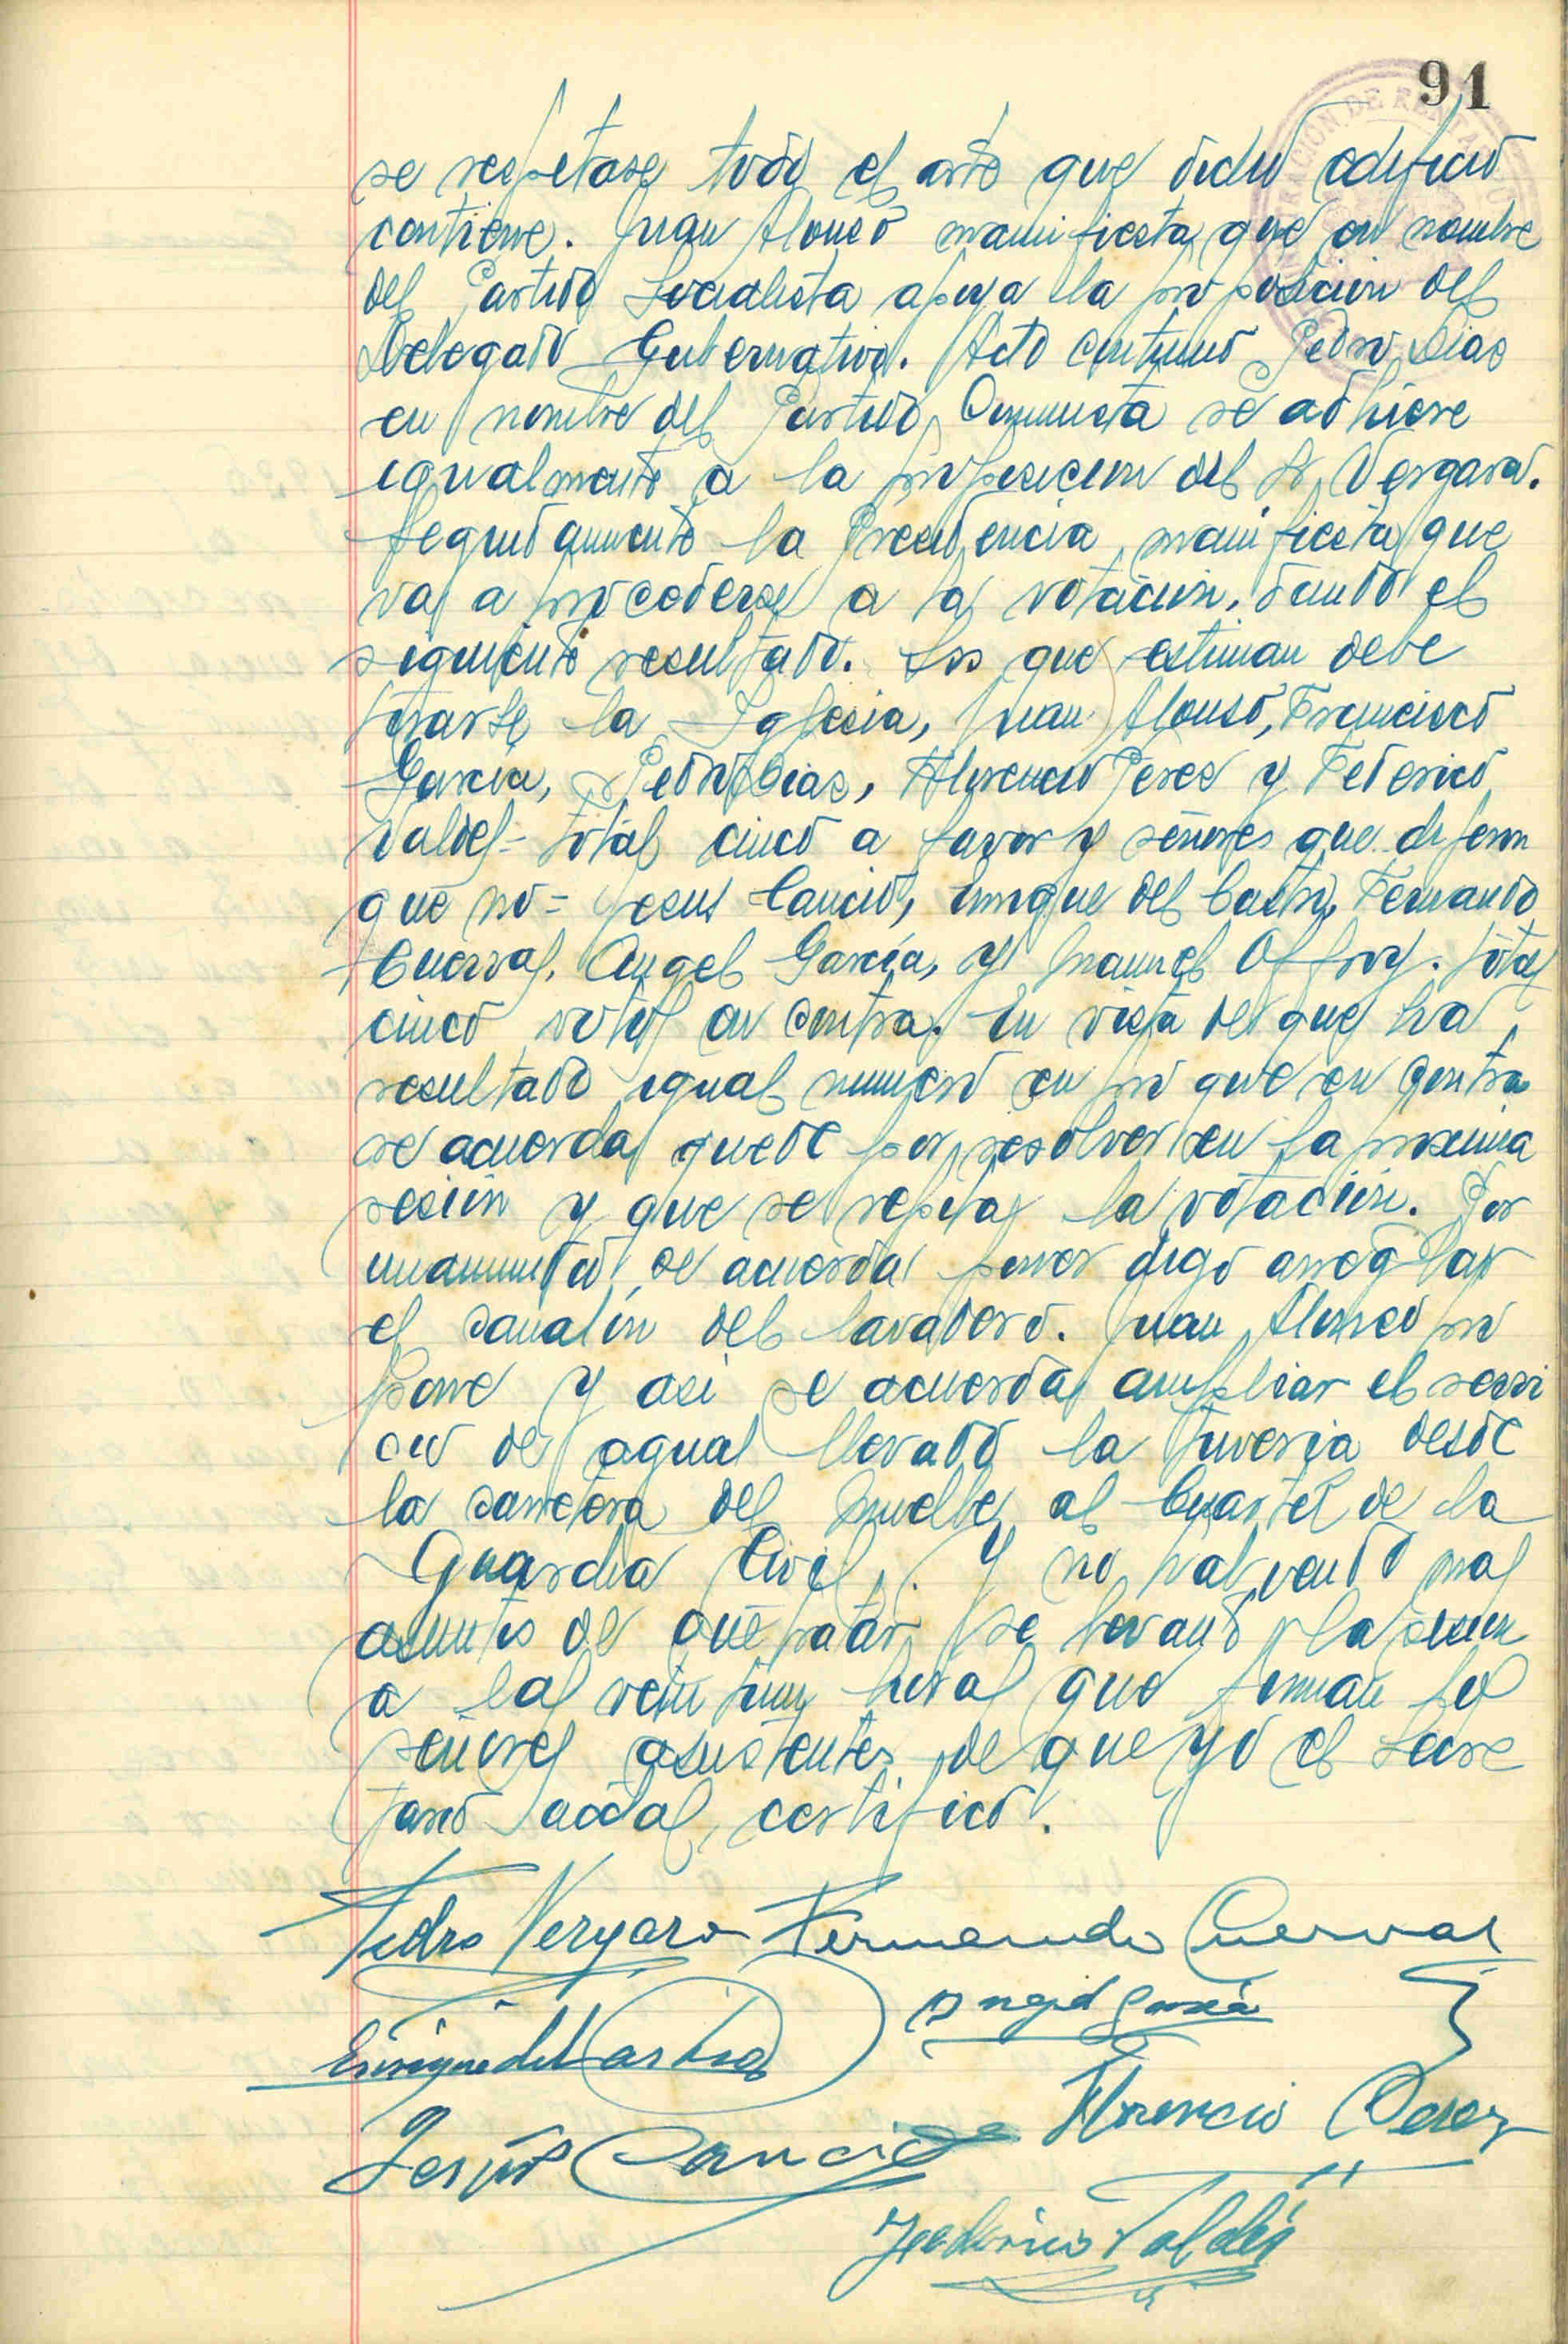 91
se respetase todo el arte que dicho edificio
contiene. Juan Alonso manifiesta que en nombre
del Partido Socialista apoya la proposicion del
Delegado Gubernativo. Acto continuo Pedro Dias
en nombre del Partido Comunista se adhiere
igualmente a la proposicion del Sr. Vergara.
Seguidamente la Presidencia manifiesta que
va a procederse a la votación, dando el
siguiente resultado. Los que estiman debe
tirarse la Iglesia, Juan Alonso, Francisco
Garcia, Pedro Dias, Florencio Perez y Federico
Valdes = total cinco a favor y señores que dijeron
que no = Jesus Cancio, Enrique del Castro, Fernando
Cuervas, Angel García, y Manuel . Total
cinco votos en contra. En vista de que ha
resultado igual numero en pro que en contra
se acuerda quede por resolver en la proxima
sesión y que se repita la votación. Por
unanimidad se acuerda poner digo arreglar
el canalón del lavadero. Juan Alonso pro
pone y asi se acuerda ampliar el servi
cio de agua llevado la tuveria desde
la carretera del Muelle al Cuartel de la
Guardia Civil. Y no habiendo mas
asuntos de que tratar se levantó la sesion
a las veintiuna horas que firman los
señores asistentes de que yo el Secre
tario acctal, certifico.
Pedro Vergara Fernando Cuervas
Enrique del Castro Angel García
Jesús Cancio Florencio Perez
Federico Valdés